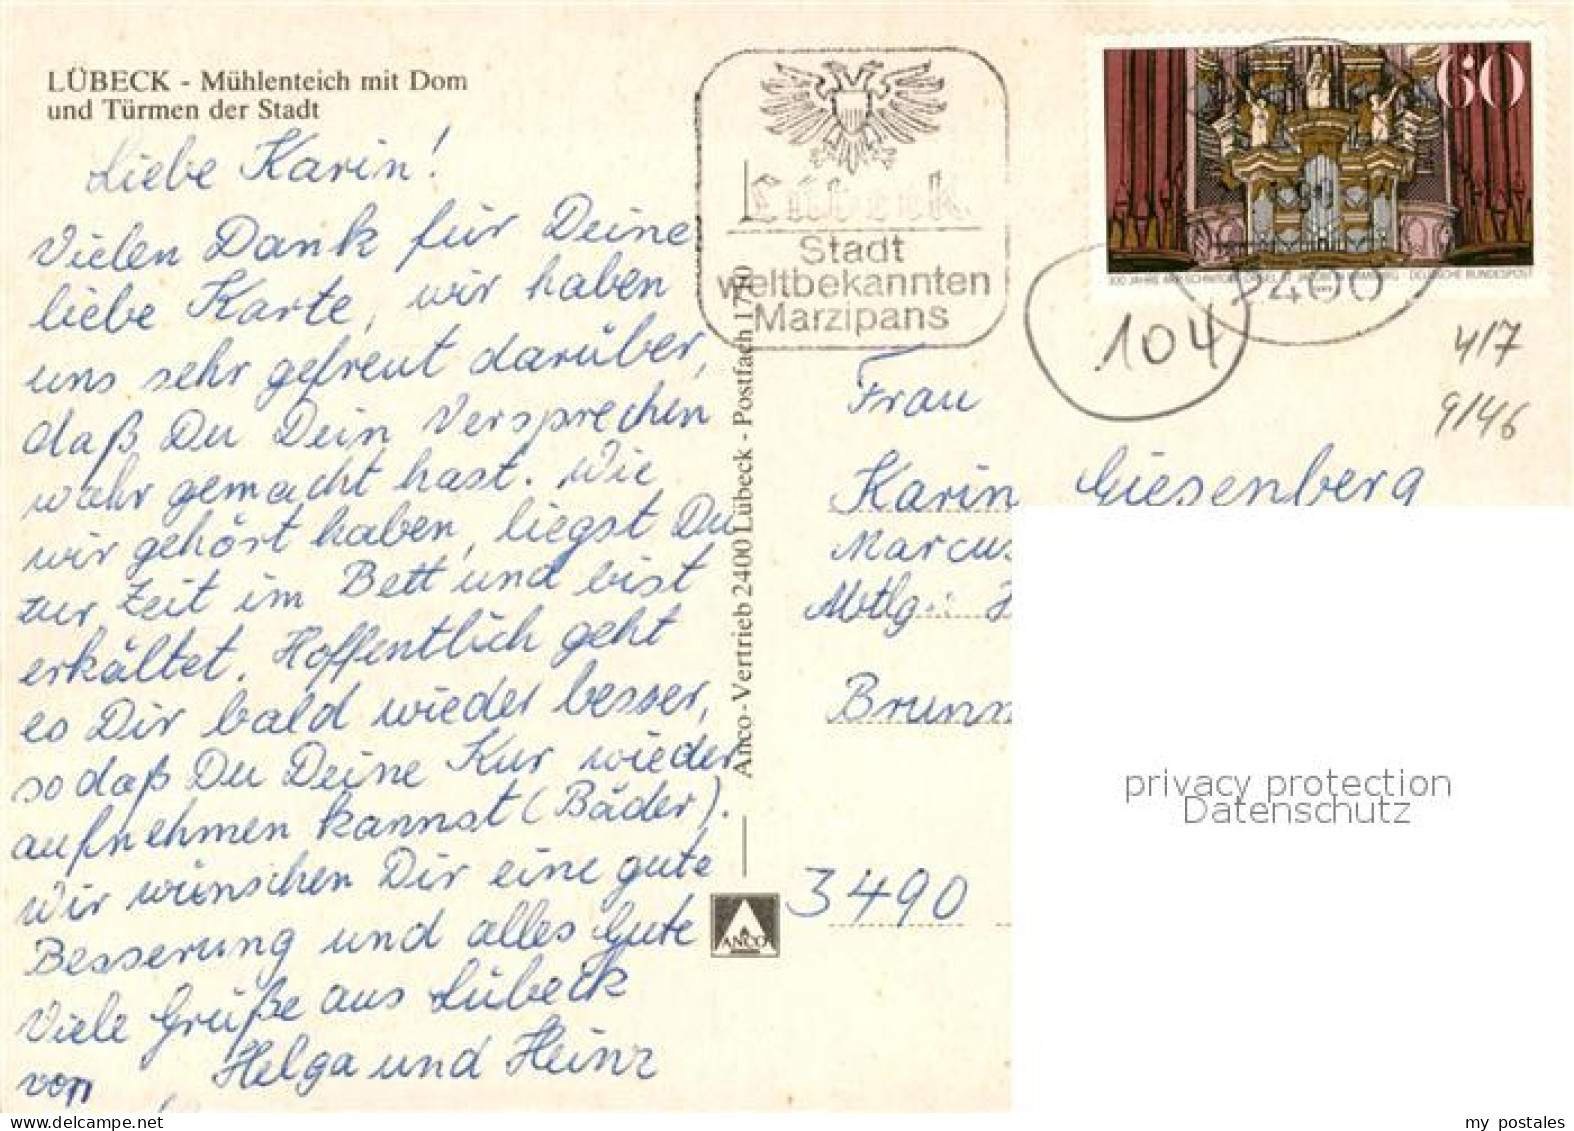 LÜBECK - Mühlenteich mit Dom
und Türmen der Stadt
Liebe Karin!
Vielen Dank für Deine
liebe Karte, wir haben
uns sehr gefreut darüber,
daß Du Dein Versprechen
wahr gemacht hast. Wie
wir gehört haben, liegst Du
zur Zeit im Bett und bist
erkältet. Hoffentlich geht
es Dir bald wieder besser,
so daß Du Deine Kur wieder
aufnehmen kannst (Bäder).
Wir wünschen Dir eine gute
Besserung und alles Gute
Viele Grüße aus Lübeck
von Helga und Heinz
Anco-Vertrieb 2400 Lübeck - Postfach 1790
ANCO
Lübeck
Stadt
weltbekannten
Marzipans
60
300 JAHRE ARP-SCHNITGER-ORGEL ST. JACOBI HAMBURG · DEUTSCHE BUNDESPOST
2400
104
4/7
9/46
Frau
Karin Giesenberg
Marcus
Abtlg.:
Brunn
3490
privacy protection
Datenschutz
my postales